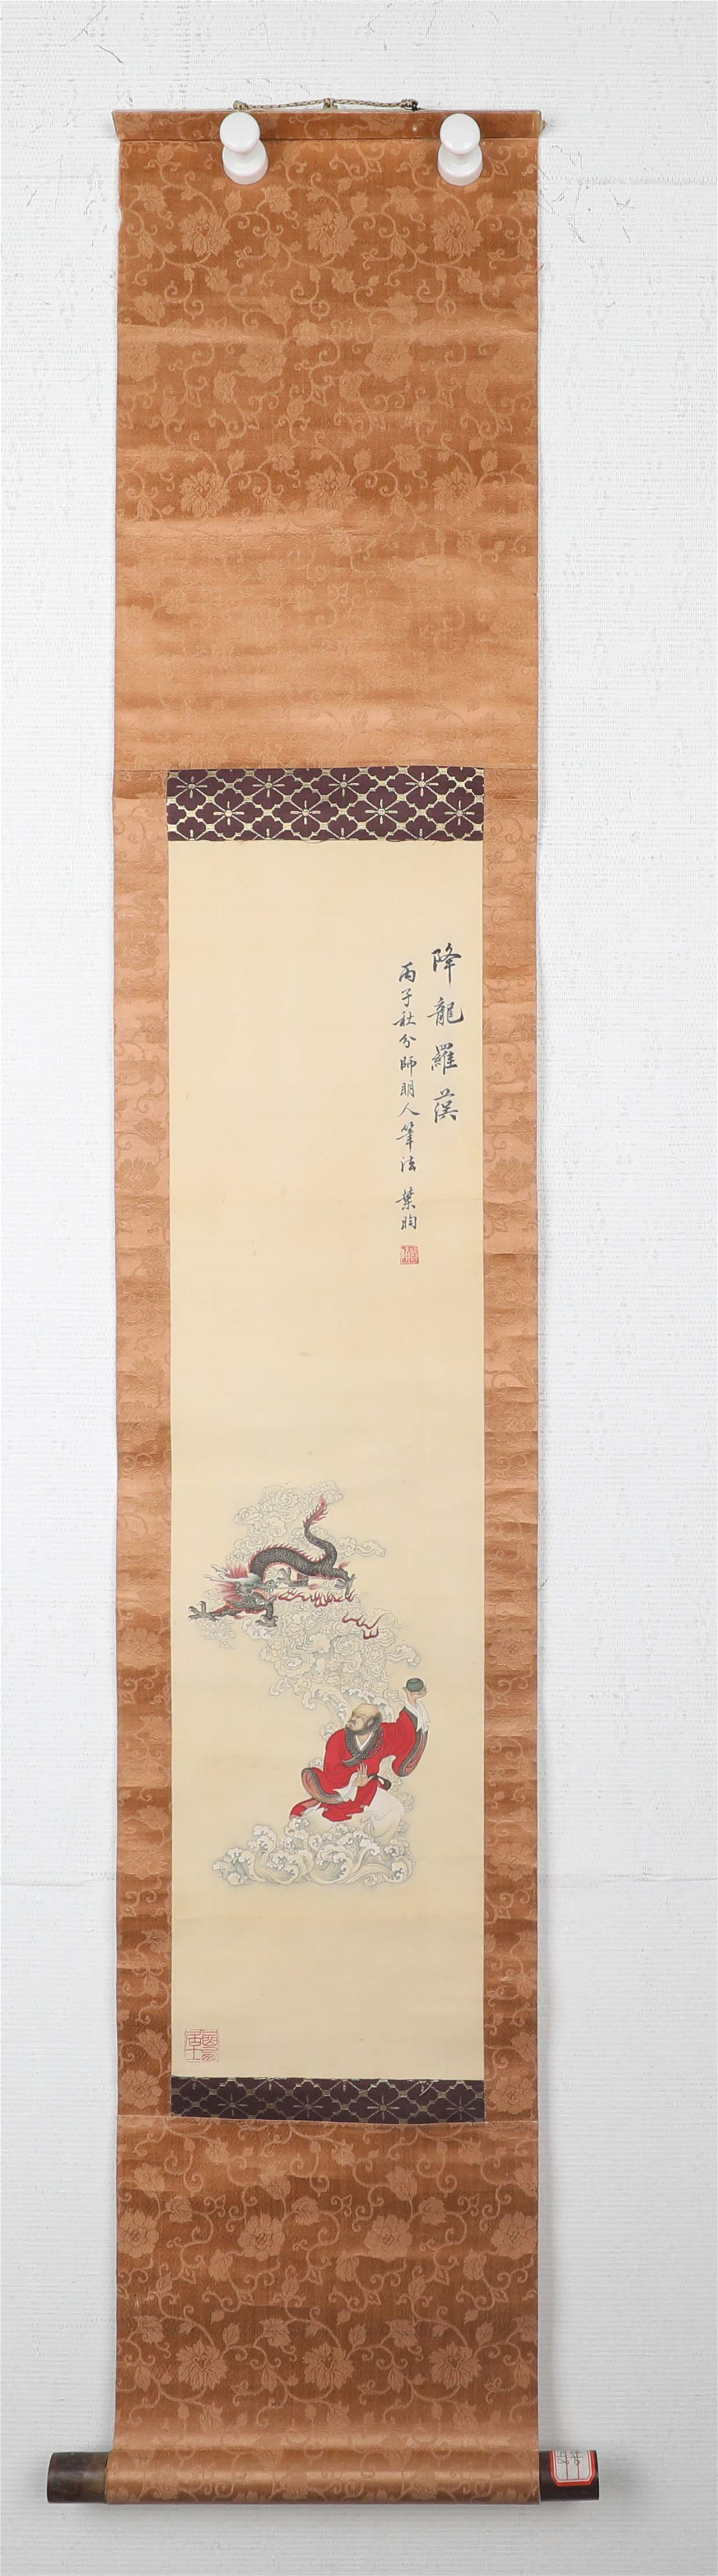 降龍羅漢
丙子秋分師明人筆法 葉昀